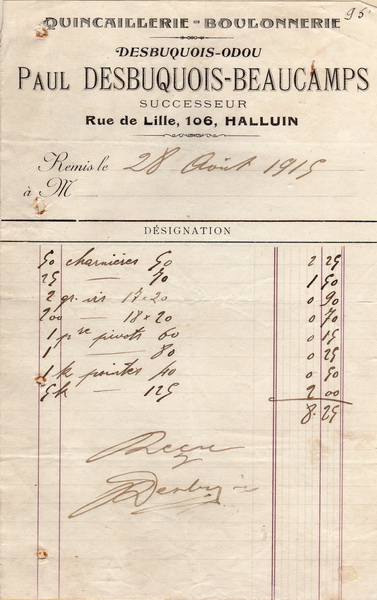 95
QUINCAILLERIE - BOULONNERIE
DESBUQUOIS-ODOU
PAUL DESBUQUOIS-BEAUCAMPS
SUCCESSEUR
Rue de Lille, 106, HALLUIN
Remis le 28 Août 1915
à M
DÉSIGNATION
50 charnières 50 2 25
25 — 70 1 50
2 gr. vis 17×20 0 90
200 — 18×20 0 70
1 pre pivots 60 0 15
1 — 80 0 25
1 k pointes 40 0 50
5k — 125 2 00
8.25